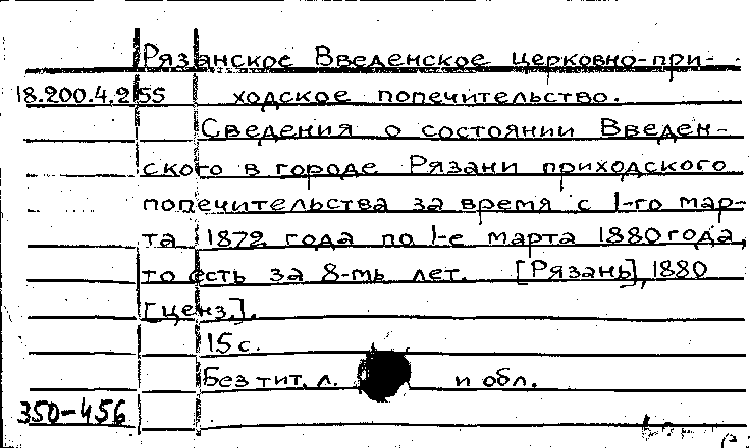 Рязанское Введенское церковно-при-
18.200.4.255 ходское попечительство.
Сведения о состоянии Введен-
ского в городе Рязани приходского
попечительства за время с 1-го мар-
та 1872 года по 1-е марта 1880 года,
то есть за 8-мь лет. [Рязань], 1880
[ценз.].
15 с.
Без тит. л. и обл.
350-456